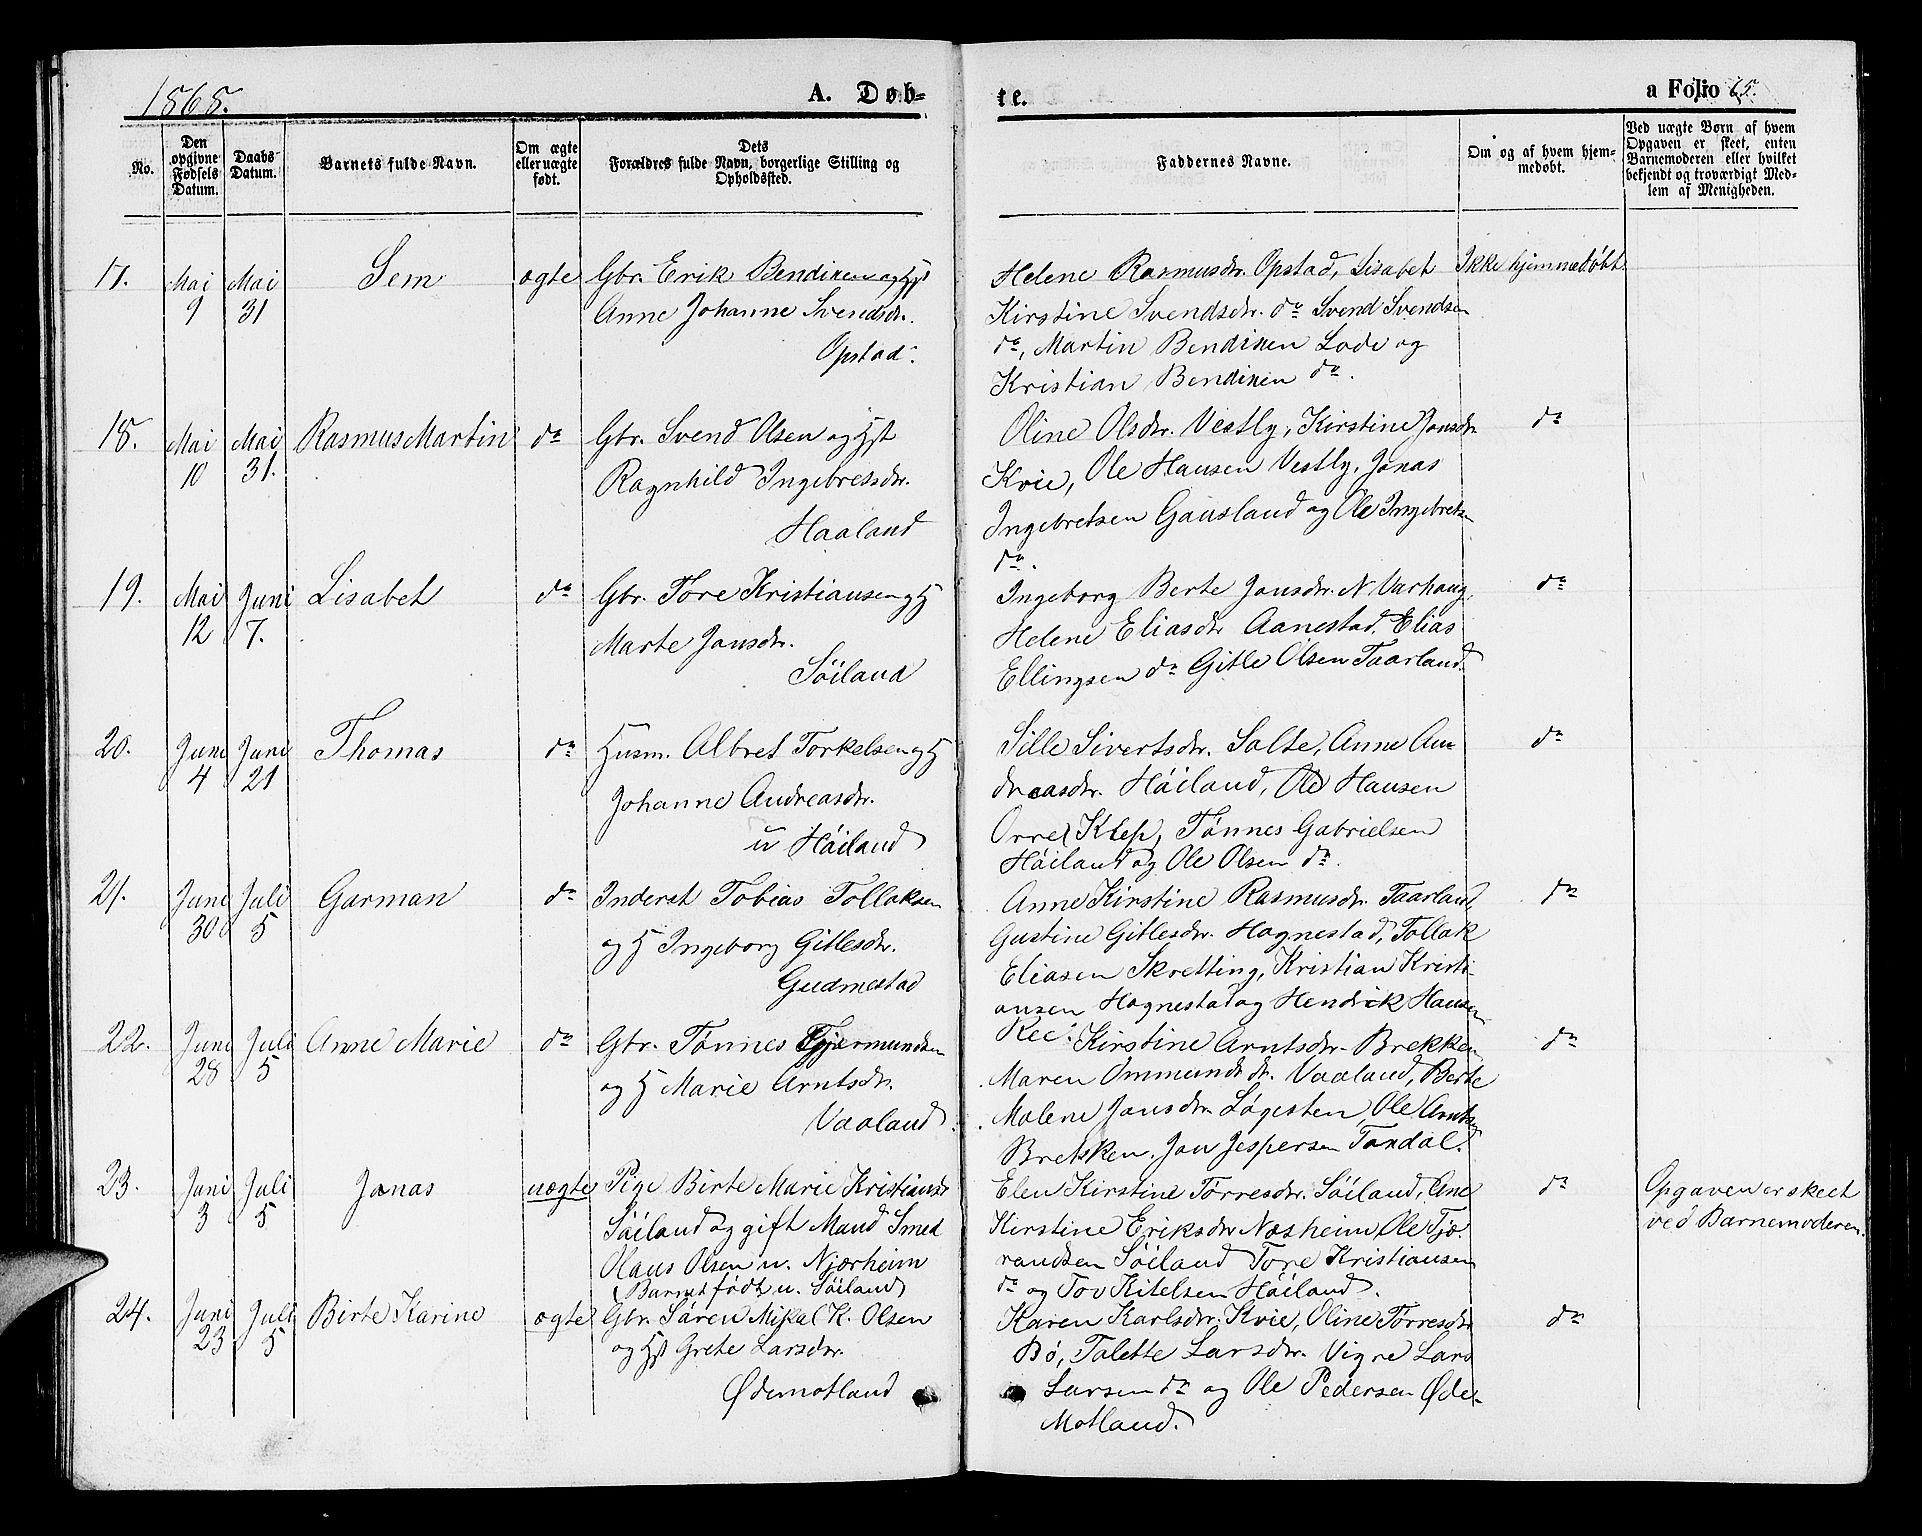 1868.
A. Døb-
te.
a Folio 65.
No.
Den opgivne Fødsels Datum.
Daabs Datum.
Barnets fulde Navn.
Om ægte eller uægte født.
Dets Forældres fulde Navn, borgerlige Stilling og Opholdssted.
Faddernes Navne.
Om og af hvem hjem-
medøbt.
Ved uægte Børn af hvem
Opgaven er skeet, enten
Barnemoderen eller hvilket
bekjendt og troværdigt Med-
lem af Menigheden.
17.
Mai 9
Mai 31
Sem
ægte
Gbr. Erik Bendixen og Hst
Anne Johanne Svendsdr.
Opstad.
Helene Rasmusdr. Opstad, Lisabet
Kirstine Svendsdr. do Svend Svendsen
do, Martin Bendixen Lode og
Kristian Bendixen do.
Ikke hjemmedøbt
18.
Mai 10
Mai 31.
Rasmus Martin
do
Gbr. Svend Olsen og Hst
Ragnhild Ingebretsdr.
Haaland
Oline Olsdr. Vestly, Kirstine Jonsdr.
Kvie, Ole Hansen Vestly, Jonas
Ingebretsen Gausland og Ole Ingebretsen
do.
do
19.
Mai 12
Juni 7.
Lisabet
do
Gbr. Tore Kristiansen og H
Marte Jonsdr.
Söiland
Ingeborg Berte Jonsdr. N. Varhaug,
Helene Eliasdr Aanestad, Elias
Ellingsen do Gitle Olsen Taarland.
do
20.
Juni 4
Juni 21
Thomas
do
Husm. Albret Torkelsen og H
Johanne Andreasdr.
u Höiland
Sille Sivertsdr. Salte, Anne An-
dreasdr. Höiland, Ole Hansen
Orre Klep, Tønnes Gabrielsen
Höiland og Ole Olsen do.
do
21.
Juni 30
Juli 5
Garman
do
Inderst Tobias Tollaksen
og H Ingeborg Gitlesdr.
Gudmestad
Anne Kirstine Rasmusdr. Taarland,
Gustine Gitlesdr. Hognestad, Tollak
Eliasen Skretting, Kristian Kristi-
ansen Hognestad og Hendrik Hansen
Ree.
do
22.
Juni 28
Juli 5
Anne Marie
do
Gbr. Tønnes Gjermundsen
og H Marie Arntsdr.
Vaaland.
Kirstine Arntsdr. Brekken
Maren Ommundsdr. Vaaland, Berte
Malene Jonsdr. Løgesten, Ole Arntsen
Brekken, Jon Jespersen Tandal.
do
23.
Juni 3
Juli 5
Jonas
uægte
Pige Birte Marie Kristiansdr
Söiland og gift Mand Smed
Olaus Olsen u. Njærheim
(Barnet født u. Söiland)
Elen Kirstine Tørresdr. Söiland, Ane
Kirstine Eriksdr Næsheim, Ole Tjø-
randsen Söiland Tore Kristiansen
do og Tov Kitelsen Höiland.
do
Opgaven er skeet
ved Barnemoderen.
24.
Juni 23
Juli 5
Birte Karine
ægte
Gbr. Søren Mikal K. Olsen
og Hst Grete Larsdr.
Ødemotland
Karen Karlsdr. Kvie, Oline Tørresdr
Bö, Talette Larsdr. Vigre Lars
Larsen do og Ole Pedersen Øde-
Motland.
do